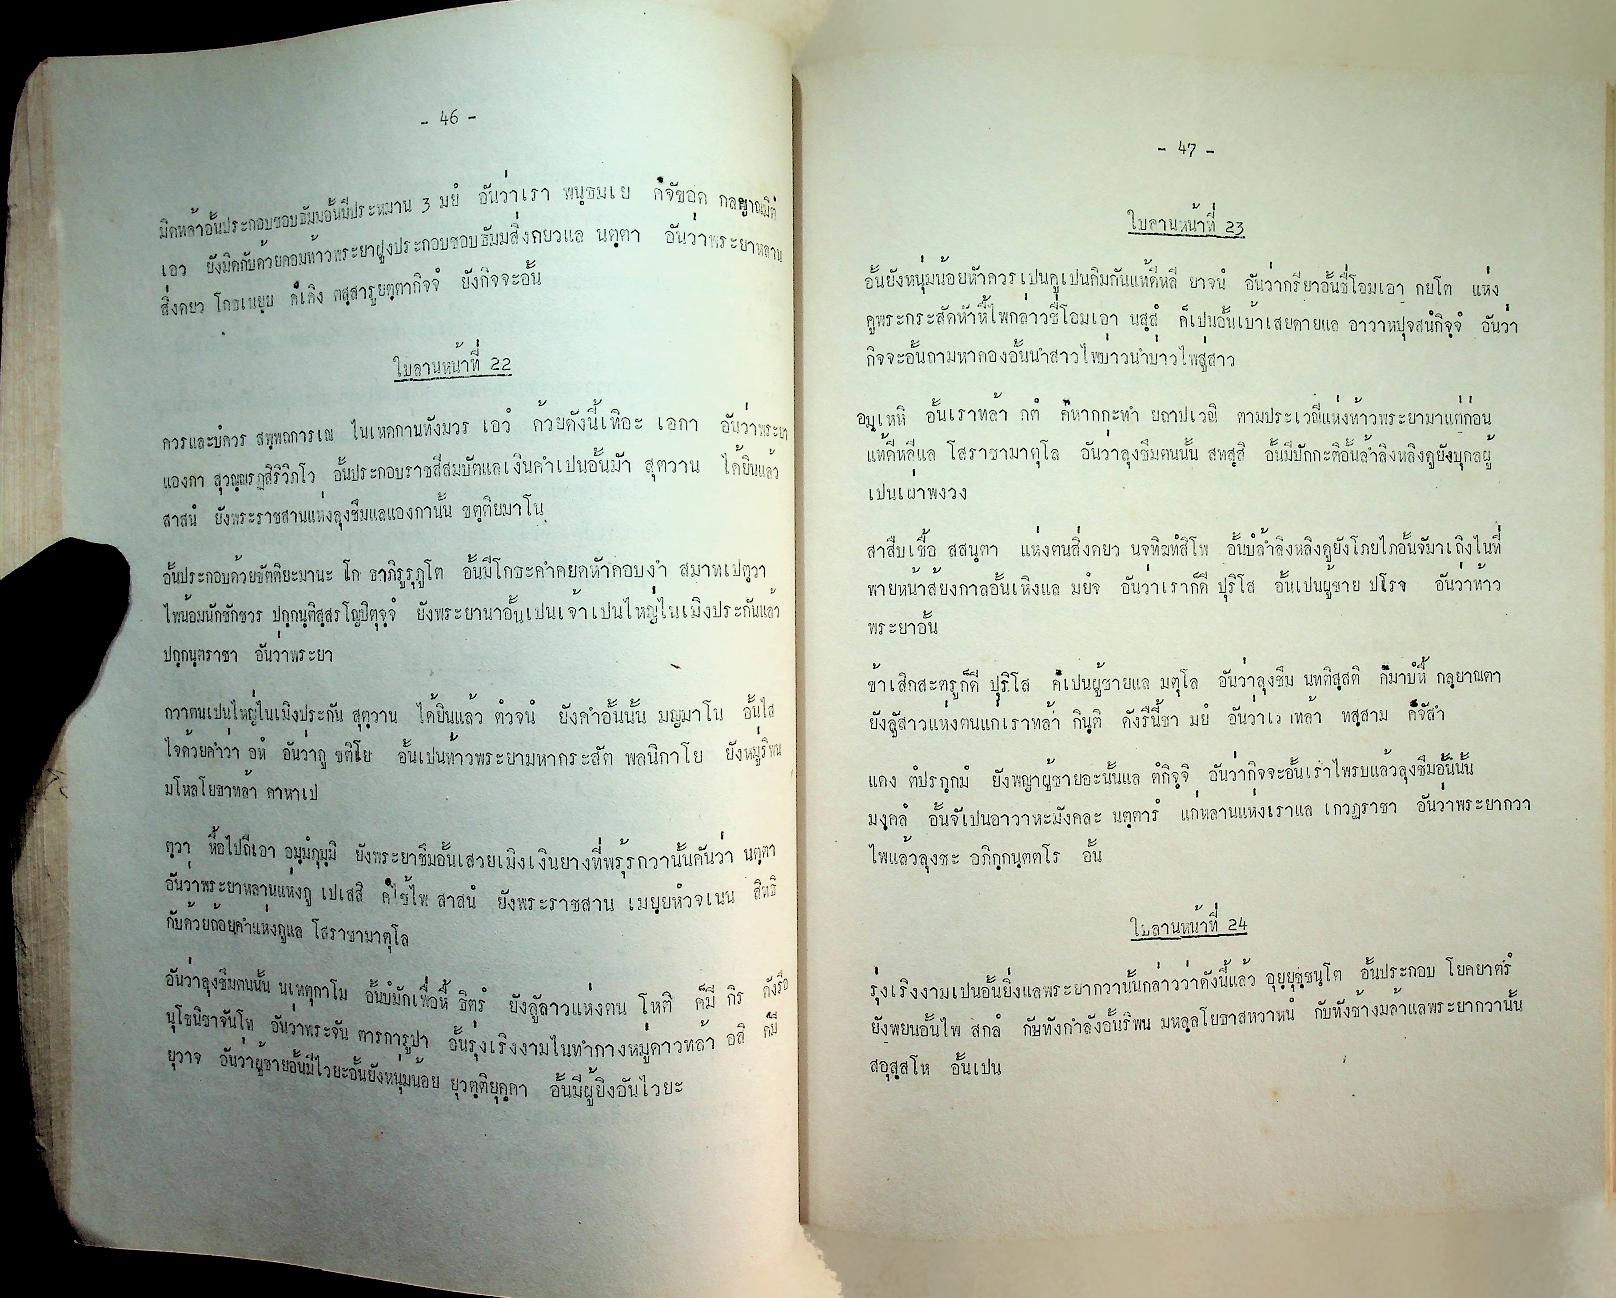 - 46 -
มิตหล้าอั้นประกอบชอบธัมมอั้นมีประหมาน 3 มยํ อันว่าเรา พนฺธมเย ก็จัขอด กลฺยาณมิตํ
เอว ยังมิตกับด้วยดอมท้าวพระยาฝูงประกอบชอบธัมมสิ่งดยวแล นตฺตา อันว่าพระยาหลาน
สิ่งดยว โกธเนยฺย ก็เคิง ตสฺสารูยตฺตากิจจํ ยังกิจจะอั้น
ใบลานหน้าที่ 22
ควรและบํควร สพฺพถการเณ ในเหตกานทังมวร เอวํ ด้วยดังนี้เทิอะ เอกา อันว่าพระยา
แองกา สุวณฺณรฏสิริวิภโว อั้นประกอบราชสีสมบัตแลเงินคำเปนอั้นมัา สุตวาน ได้ยินแล้ว
สาสนํ ยังพระราชสานแห่งลุงชืมแลแองกานั้น ขตฺติยมาโน
อั้นประกอบด้วยขัตติยะมานะ โก ธาภิรูรุภูโต อั้นมีโกธะคำคยดหัาคอบงำ สมาทเปตฺวา
ไพน้อมนักชักชวร ปกฺกนฺติสฺสรโญปิตุจฺจํ ยังพระยานาอั้นเปนเจ้าเปนใหญ่ในเมิงประกันแล้ว
ปกฺกนฺตราชา อันว่าพระยา
กวาตนเปนใหญ่ในเมิงประกัน สุตฺวาน ได้ยินแล้ว ตํวจนํ ยังคำอั้นนั้น มญมาโน อั้นใส
ใจด้วยคำว่า อหํ อันว่ากู ขติโย อั้นเปนท้าวพระยามหากระสัต พลนิกาโย ยังหมู่ริพน
มโหสโยธาหล้า คาหาเป
ตฺวา หื้อไปถือเอา อมฺมํกุมฺมิ ยังพระยาชืมอั้นเสวยเมิงเงินยางที่พรุ้รกวานั้นคันว่า นตฺตา
อันว่าพระยาหลานแห่งกู เปเสสิ ก็ใช้ไพ สาสนํ ยังพระราชสาน เมยฺยหํวจเนน สิทธิ
กับด้วยถ้อยคำแห่งกูแล โสราชามาตุโล
อันว่าลุงชืมตนนั้น นเหตุกาโม อั้นบํมักเพื่อหื้ ธิตรํ ยังลูสาวแห่งตน โหติ ก็มี กิร ดังรือ
นฺโชนิชาจันโท อันว่าพระจัน ตารการูปา อั้นรุ่งเริงงามในทำกางหมู่ดาวหล้า อสิ ก็มี
ยุวาจ อันว่าผู้ชายอั้นมีไวยะอั้นยังหนุ่มน้อย ยุวตฺติยุคฺตา อั้นมีผู้ยิงอันไวยะ
- 47 -
ใบลานหน้าที่ 23
อั้นยังหนุ่มน้อยหัาควรเปนคูเปนคิมกันแท้ดีหลี ยาจนํ อันว่ากรียาอั้นชี่โอมเอา กยโต แห่ง
คูพระกระสัดหัาหื้ไพกล่าวชี่โอมเอา นสฺสํ ก็เปนอั้นเบ้าเสยดายแล อาวาหปุจสนํกิจฺจํ อันว่า
กิจจะอั้นถามหาดองอั้นนำสาวไพบ่าวนำบ่าวไพสู่สาว
อมฺเหหิ อั้นเราหล้า กตํ ก็หากกะทำ ยถาปเวณิ ตามประเวณีแห่งท้าวพระยามาแต่ก่อน
แท้ดีหลีแล โสราชามาตุโล อันว่าลุงชืมตนนั้น สทสฺสิ อั้นมีปักกะติอั้นล้ำลิงหลิงดูยังบุกลผู้
เปนเผ่าพงวง
สาสืบเชื้อ สสนฺตา แห่งตนสิ่งดยว นจทิฆทํสิโพ อั้นบํล้ำลิงหลิงดูยังโภยไภอั้นจัมาเถิงในที่
พายหน้าส้ยงกาลอั้นเหิงแล มยํจ อันว่าเราก็ดี ปุริโส อั้นเปนผู้ชาย ปโรจ อันว่าท้าว
พระยาอั้น
ข้าเสิกสะตรูก็ดี ปุริโส ก็เปนผู้ชายแล มตุโล อันว่าลุงชืม นทติสฺสติ ก็มาบํหื้ กลฺยาณตา
ยังลูสาวแห่งตนแก่เราหล้า กินฺติ ดังรืนี้ชา มยํ อันว่าเราหล้า ทสฺสาม ก็จัสำ
แดง ตํปรกฺกมํ ยังพญาผู้ชายอะนั้นแล ตํกิจฺจิ อันว่ากิจจะอั้นเราไพรบแล้วลุงชืมอั้นนั้น
มงฺคลํ อั้นจัเปนอาวาหะมังคละ นตฺตารํ แก่หลานแห่งเราแล เกวฏราชา อันว่าพระยากวา
ไพแล้วลุงชะ อภิกฺกนฺตตโร อั้น
ใบลานหน้าที่ 24
รุ่งเริงงามเปนอั้นยิ่งแลพระยากวานั้นกล่าวว่าดังนี้แล้ว อุยฺยุชฺชนฺโต อั้นประกอบ โยคยาตรํ
ยังพยนอั้นไพ สกลํ กัษทังกำลังอั้นริพน มหลฺลโยธาสหวาหนํ กับทังช้างม้าแลพระยากวานั้น
สอุสฺสโห อั้นเปน